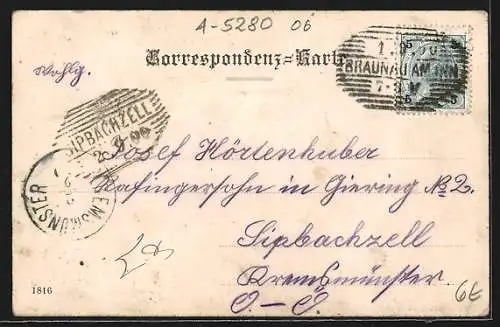 A-5280 06
Correspondenz-Karte
5 5
BRAUNAU AM INN
5 5
Wohlg.
SIPBACHZELL
KREMSMÜNSTER
Josef Hörtenhuber
in Giering No 2.
Sipbachzell
Kremsmünster
O.-Ö.
1816
6E